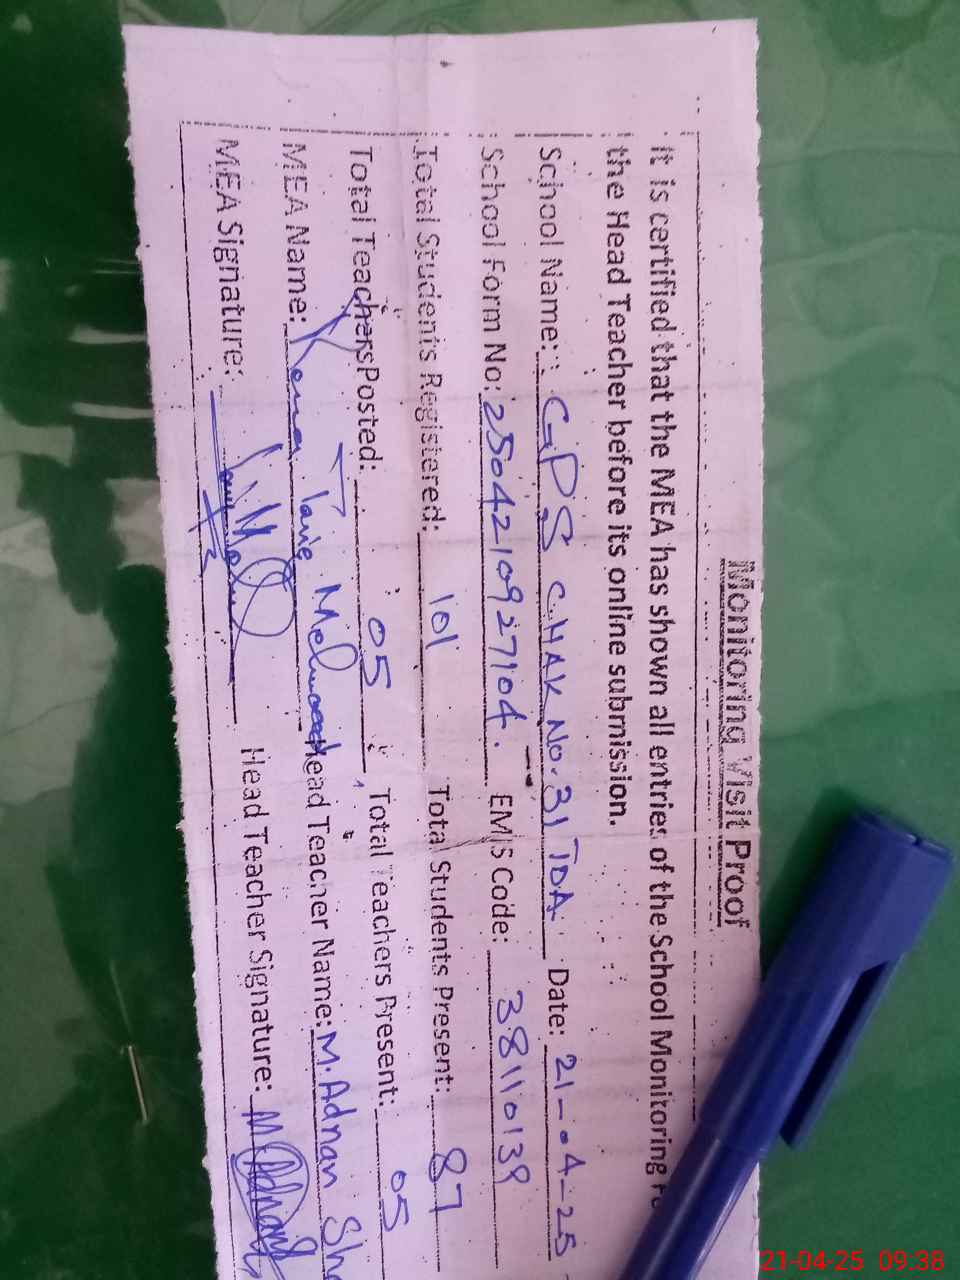 Monitoring Visit Proof
It is certified that the MEA has shown all entries of the School Monitoring
the Head Teacher before its online submission.
School Name: GPS CHAK No. 31 TDA Date: 21-04-25
School Form No: 2504210927104. EMIS Code: 38110139
Total Students Registered: 101 Total Students Present: 87
Total Teachers Posted: 05 Total Teachers Present: 05
MEA Name: Tariq Mehmood Head Teacher Name: M. Adnan
MEA Signature: Head Teacher Signature: M Adnan
21-04-25 09:38